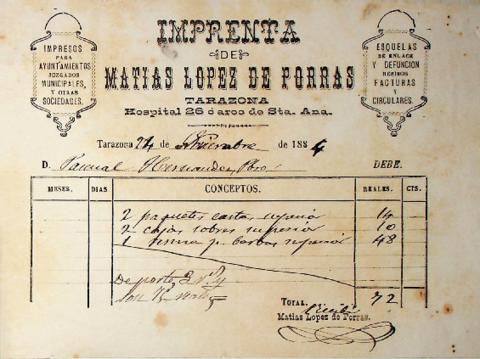 IMPRENTA
DE
MATIAS LOPEZ DE PORRAS
TARAZONA
Hospital 26 á arco de Sta. Ana.
IMPRESOS
PARA
AYUNTAMIENTOS
JUZGADOS
MUNICIPALES,
Y OTRAS
SOCIEDADES.
ESQUELAS
DE ENLACE
Y DEFUNCION
RECIBOS
FACTURAS
Y
CIRCULARES.
Tarazona 24 de Noviembre de 1884
D. Pascual Hernandez, Pbro. DEBE.
MESES. DIAS CONCEPTOS. REALES. CTS.
2 paquetes carta superior 14
2 cajas sobres superior 10
1 resma p. barba superior 48
De porte
TOTAL. 72
Recibí
Matias Lopez de Porras.